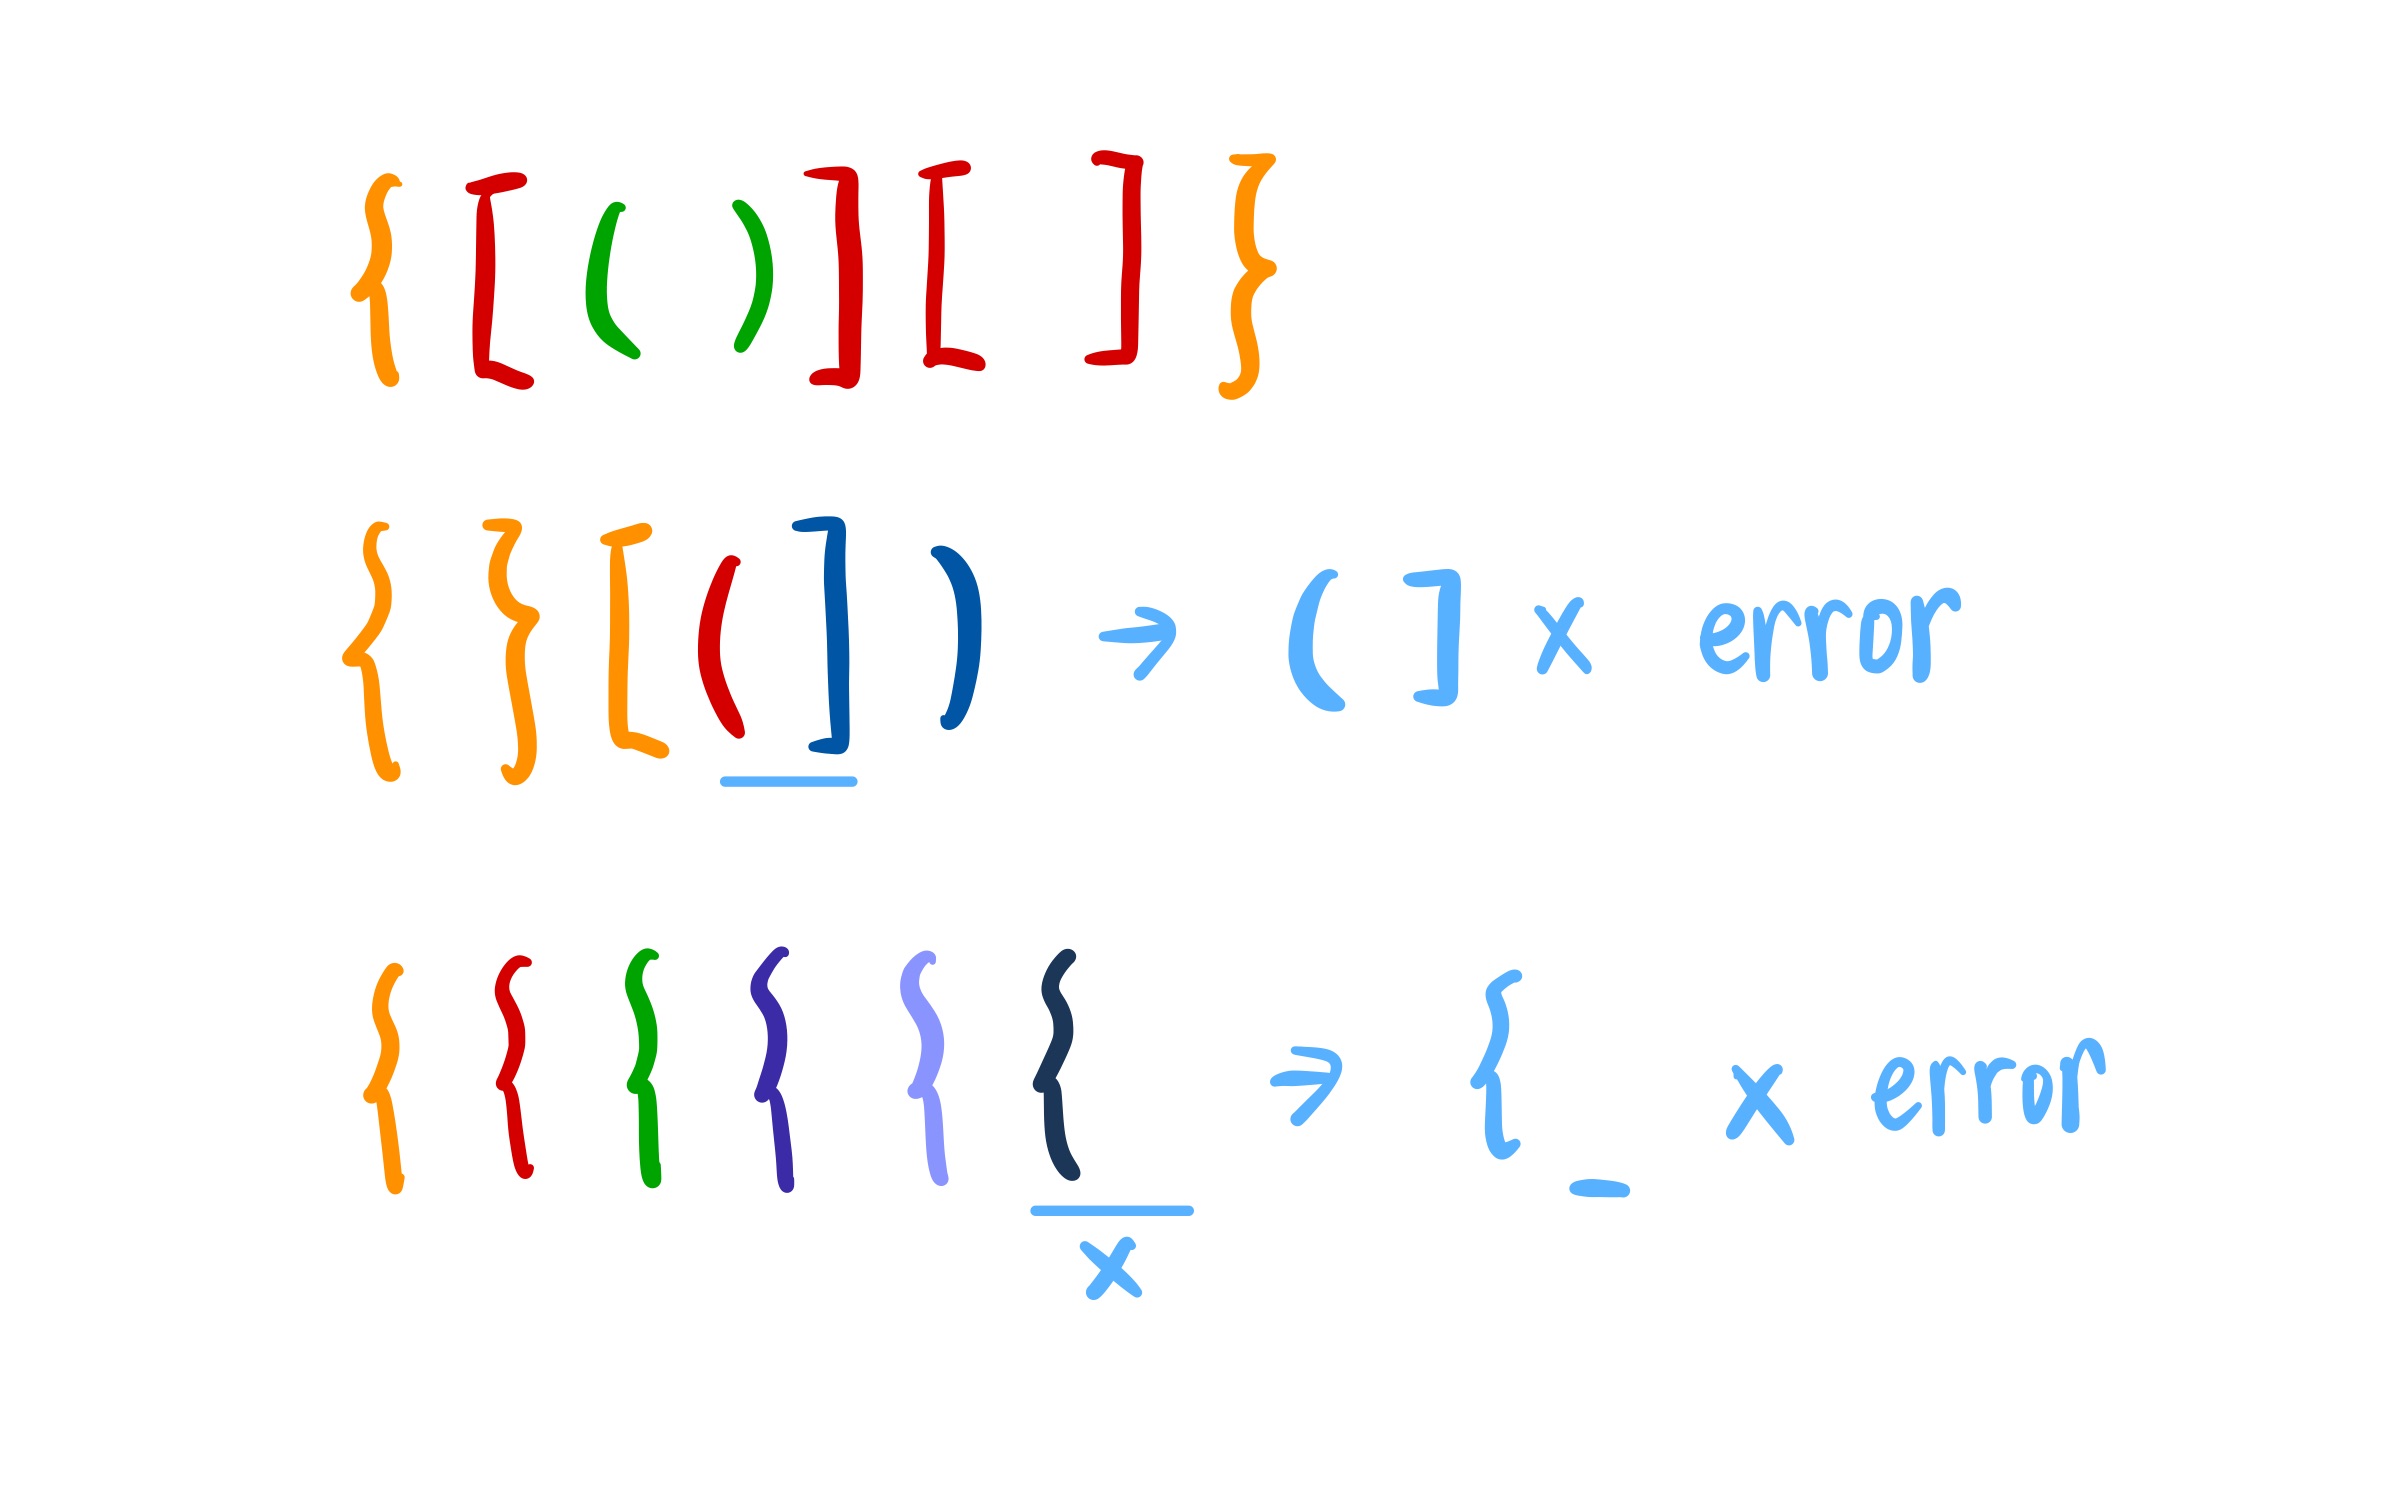 { [ ( ) ] [ ] }
{ } [ ( ] ) → ( ] x error
{ { { { { { → { _ x error
x